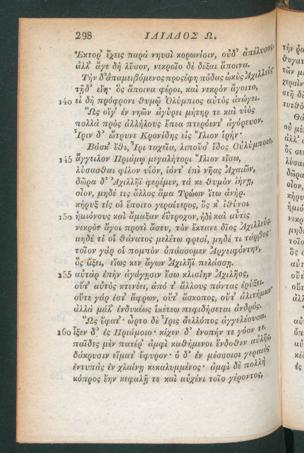 298 ΙΛΙΑΔΟΣ Ω.
Ἕκτορ᾽ ἔχεις παρὰ νηυσὶ κορωνίσιν, οὐδ᾽ ἀπέλυσας·
ἀλλ᾽ ἄγε δὴ λῦσον, νεκροῖο δὲ δέξαι ἄποινα.
Τὴν δ᾽ ἀπαμειβόμενος προσέφη πόδας ὠκὺς Ἀχιλλεύς·
τῇδ᾽ εἴη· ὃς ἄποινα φέροι, καὶ νεκρὸν ἄγοιτο,
140 εἰ δὴ πρόφρονι θυμῷ Ὀλύμπιος αὐτὸς ἀνώγει.
Ὣς οἵγ᾽ ἐν νηῶν ἀγύρει μήτηρ τε καὶ υἱὸς
πολλὰ πρὸς ἀλλήλους ἔπεα πτερόεντ᾽ ἀγόρευον.
Ἶριν δ᾽ ὤτρυνε Κρονίδης εἰς Ἴλιον ἱρήν·
Βάσκ᾽ ἴθι, Ἶρι ταχεῖα, λιποῦσ᾽ ἕδος Οὐλύμποιο,
145 ἄγγειλον Πριάμῳ μεγαλήτορι Ἴλιον εἴσω,
λύσασθαι φίλον υἱόν, ἰόντ᾽ ἐπὶ νῆας Ἀχαιῶν,
δῶρα δ᾽ Ἀχιλλῆϊ φερέμεν, τά κε θυμὸν ἰήνῃ,
οἶον, μηδέ τις ἄλλος ἅμα Τρώων ἴτω ἀνήρ.
κήρυξ τίς οἱ ἕποιτο γεραίτερος, ὅς κ᾽ ἰθύνοι
150 ἡμιόνους καὶ ἄμαξαν εὔτροχον, ἠδὲ καὶ αὖτις
νεκρὸν ἄγοι προτὶ ἄστυ, τὸν ἔκτανε δῖος Ἀχιλλεύς.
μηδέ τί οἱ θάνατος μελέτω φρεσί, μηδέ τι τάρβος·
τοῖον γάρ οἱ πομπὸν ὀπάσσομεν Ἀργειφόντην,
ὃς ἄξει, εἵως κεν ἄγων Ἀχιλῆϊ πελάσσῃ.
155 αὐτὰρ ἐπὴν ἀγάγῃσιν ἔσω κλισίην Ἀχιλῆος,
οὔτ᾽ αὐτὸς κτενέει, ἀπό τ᾽ ἄλλους πάντας ἐρύξει·
οὔτε γάρ ἐστ᾽ ἄφρων, οὔτ᾽ ἄσκοπος, οὔτ᾽ ἀλιτήμων·
ἀλλὰ μάλ᾽ ἐνδυκέως ἱκέτεω πεφιδήσεται ἀνδρός.
Ὣς ἔφατ᾽· ὦρτο δὲ Ἶρις ἀελλόπος ἀγγελέουσα.
160 ἷξεν δ᾽ ἐς Πριάμοιο· κίχεν δ᾽ ἐνοπήν τε γόον τε.
παῖδες μὲν πατέρ᾽ ἀμφὶ καθήμενοι ἔνδοθεν αὐλῆς,
δάκρυσιν εἵματ᾽ ἔφυρον· ὁ δ᾽ ἐν μέσσοισι γεραιὸς
ἐντυπὰς ἐν χλαίνῃ κεκαλυμμένος· ἀμφὶ δὲ πολλὴ
κόπρος ἔην κεφαλῇ τε καὶ αὐχένι τοῖο γέροντος,